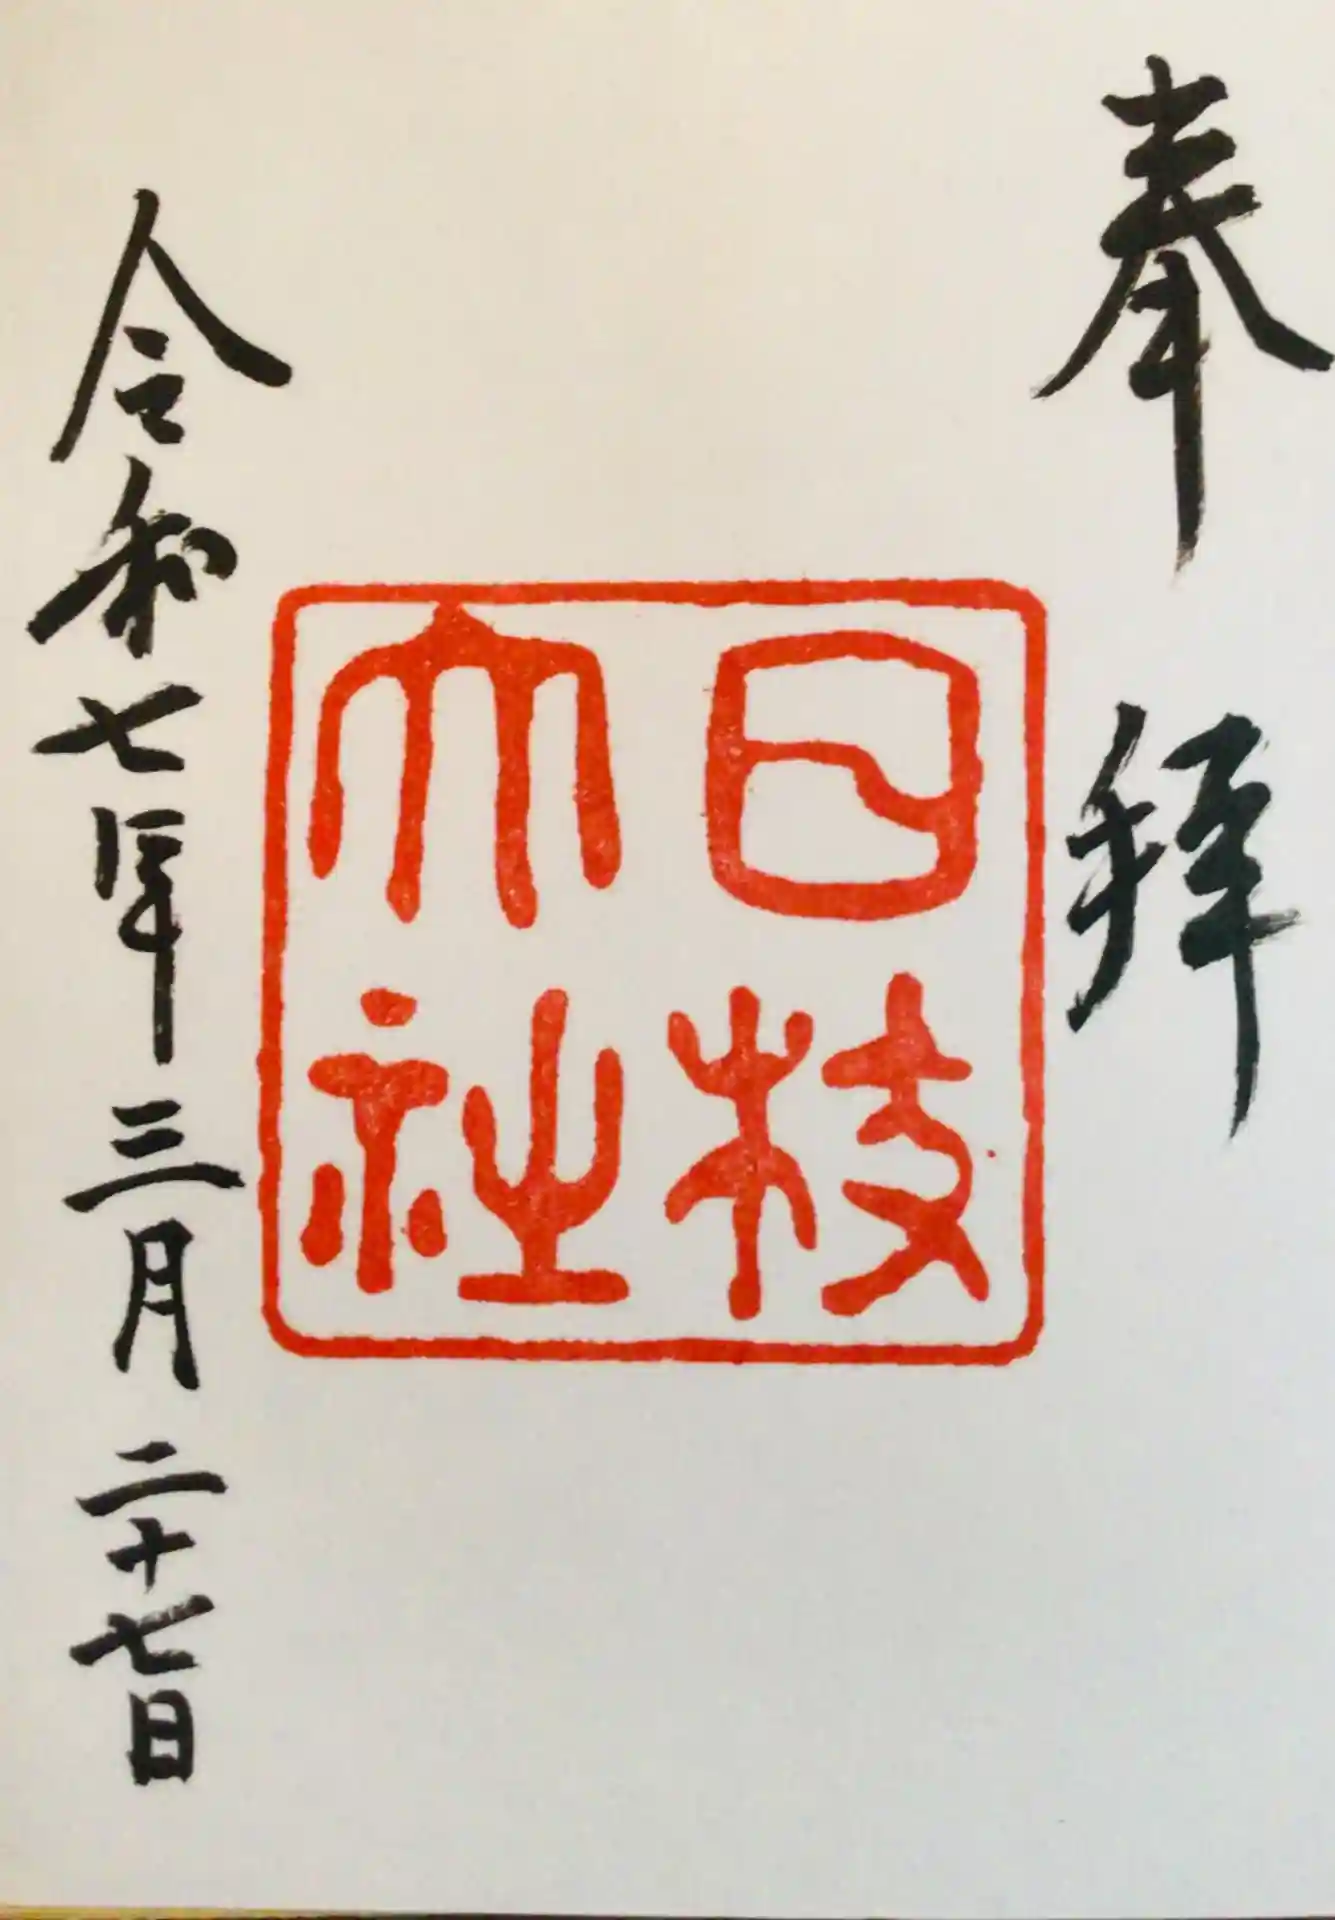 奉拝
日枝
大社
令和七年三月二十七日